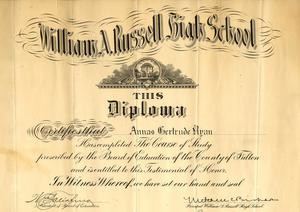 William A. Russell High School
THIS
Diploma
Certifies that Annas Gertrude Ryan
Has completed The Course of Study
prescribed by the Board of Education of the County of Fulton
and is entitled to this Testimonial of Honor.
In Witness Whereof, we have set our hand and seal
Principal William A. Russell High School